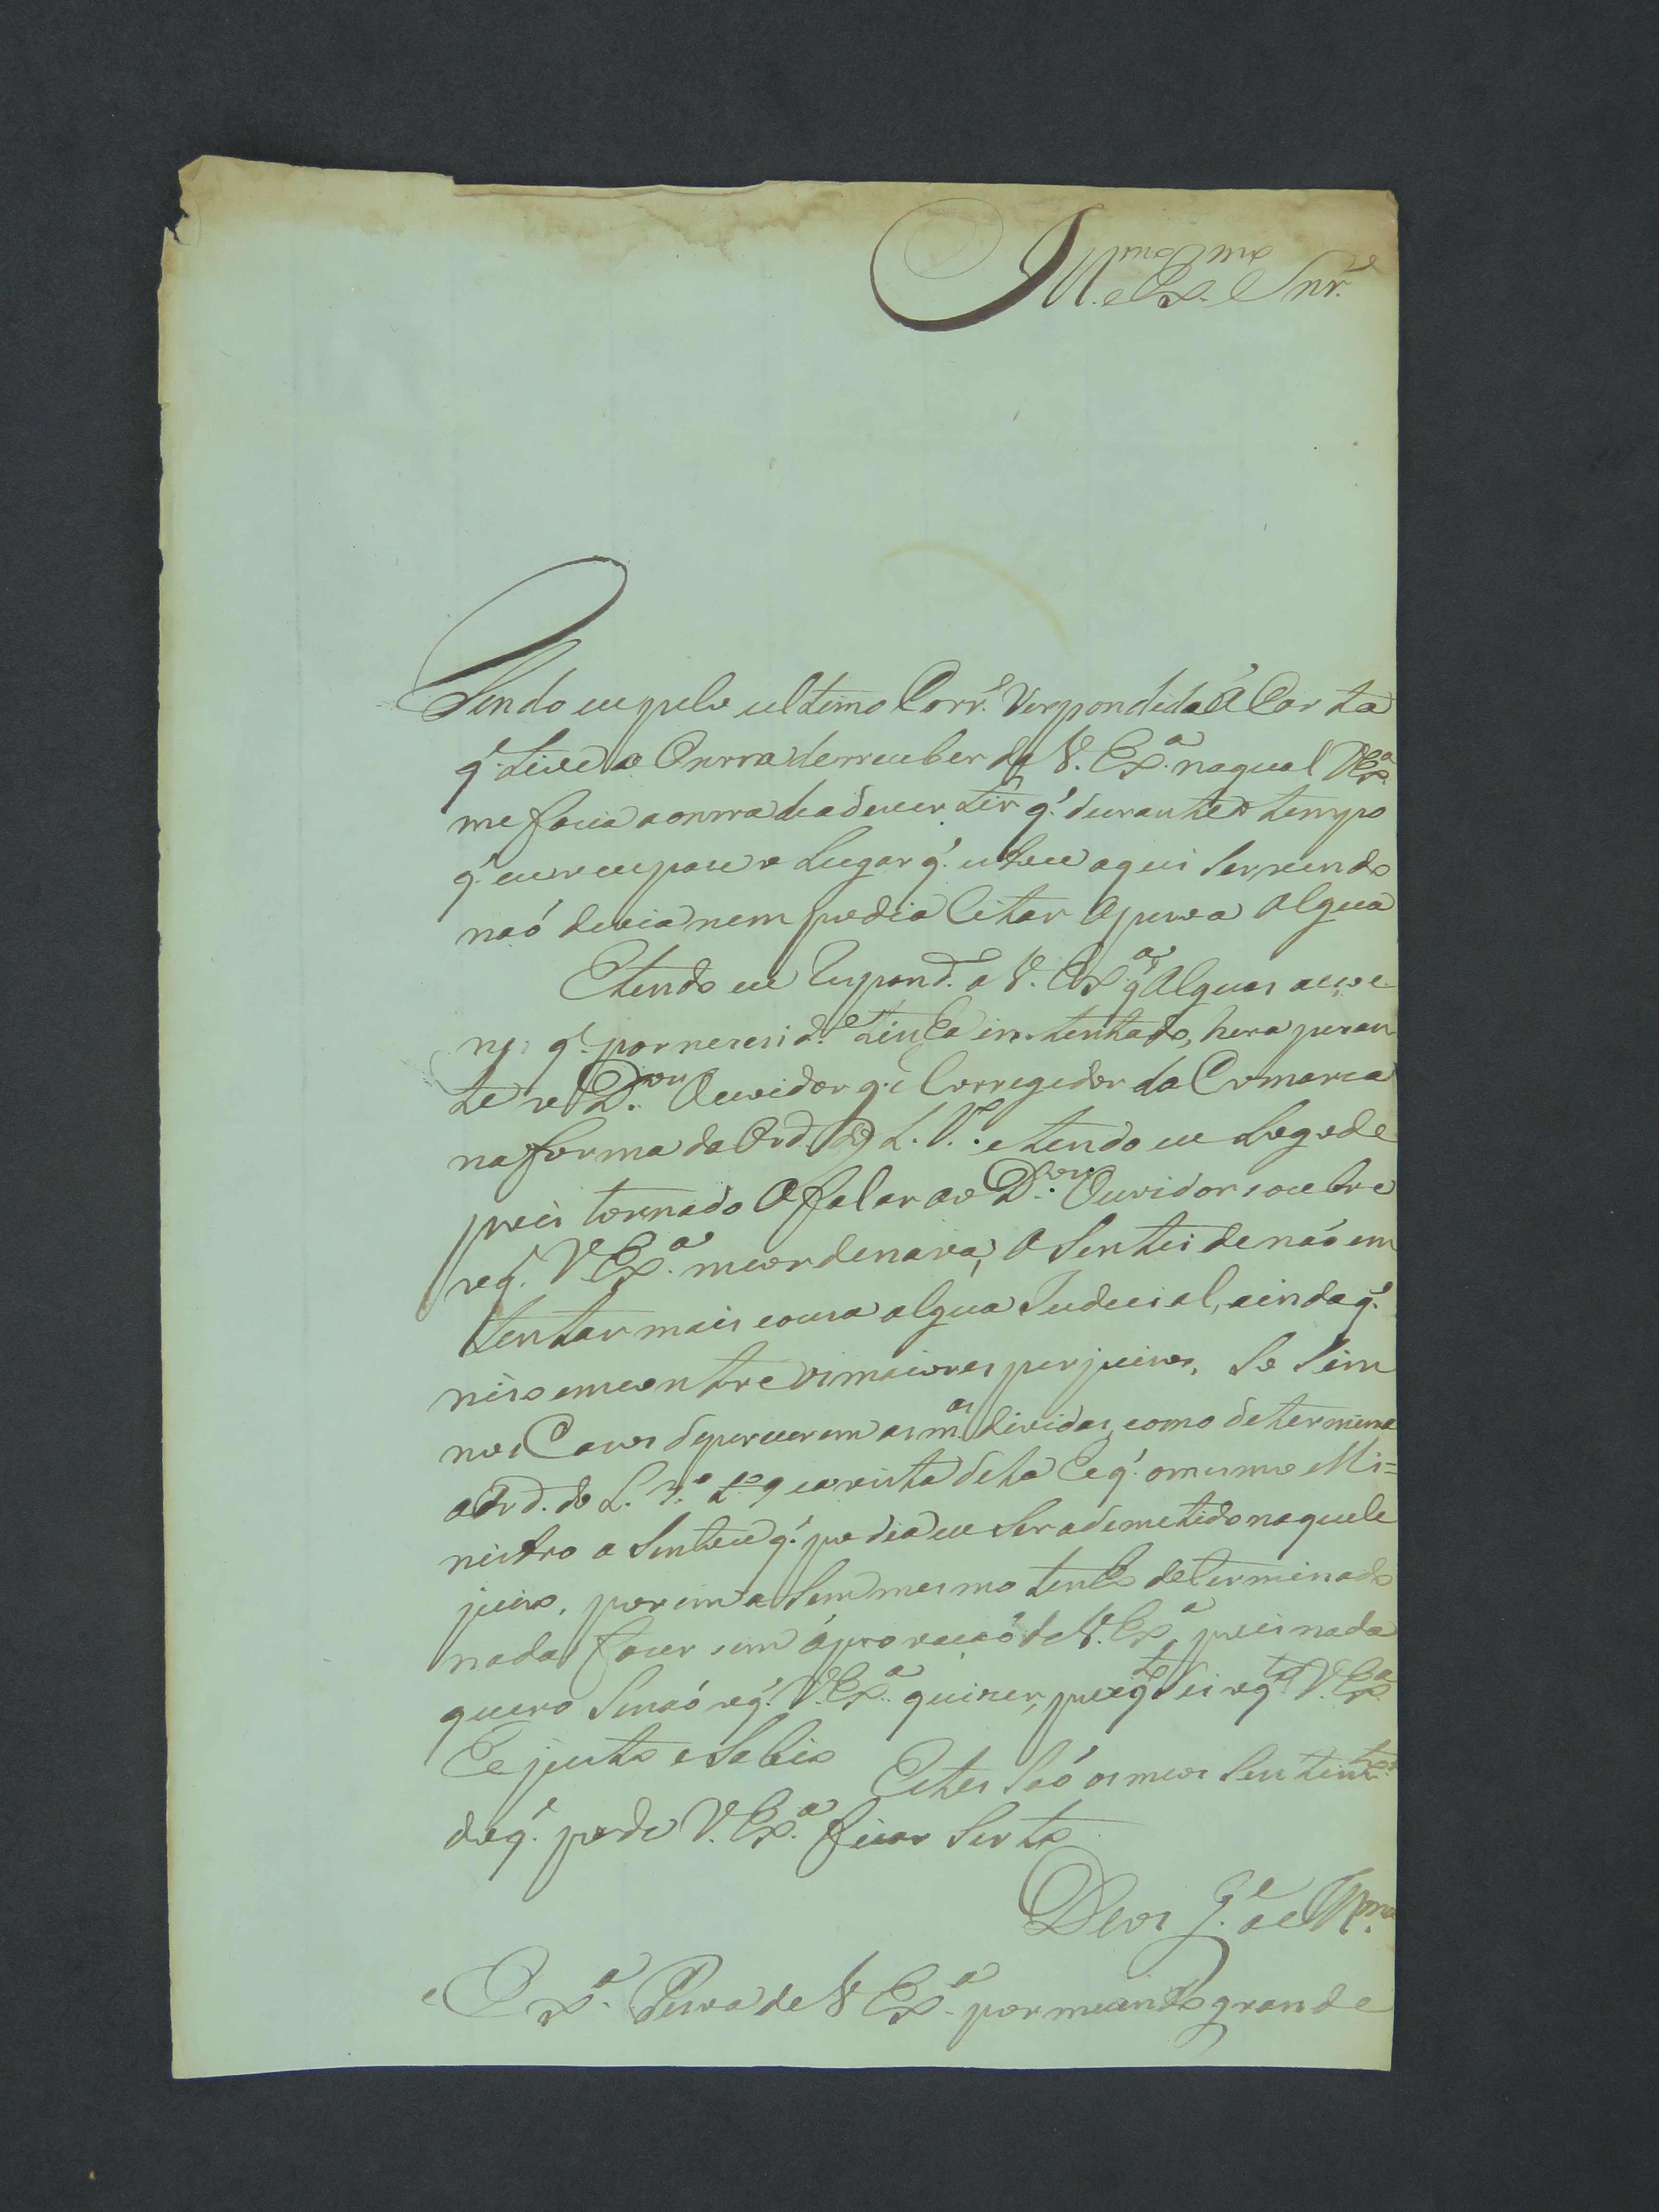 Ill.mo e Ex.mo Snr.
Tendo eu pelo ultimo Corr.e Respondido á Carta
q.' tive a Onrra de rreceber de V. Ex.a na qual V. Ex.a
me facia a onrra de adverter q.' durante o tempo
q.' eu ocupase o Lugar q.' estou aqui Servindo
naó devia nem podia Citar a pesoa algua
E tendo eu Respond.o a V. Ex.a q.' Alguas acçoe
ns q.' por necesid.e tinha intentado, hera peran
te o D.or Ouvidor q.' é Corregedor da Comarca
na forma da Ord. do L. e tendo eu Logo de
pois tornado a falar ao D.or Ouvidor soubre
o q.' V. Ex.a me ordenava, A Sentei de naó em
tentar mais cousa algua Judicial, ainda q.'
niso emcontre os maiores perjuizos, So Sim
nos Casos de percuerem as m.as dividas, como determina
a Ord. do L. 3.o e q.' o mesmo Mi=
nistro a Sentou q.' podia eu Ser ademetido naquele
juizo, porem a Sim mesmo tenho determinado
nada facer sem áprovacaó de V. Ex.a pois nada
quero Senaó o q.' V. Ex.a quizer, pois q.to Sei o q.to V. Ex.a
he justo e Sabio Estes Saó os meos Sentim.tos
do q.' pode V. Ex.a ficar Serto
Deos g.e a Ill.ma
e Ex.a Pesoa de V Ex.a por muintos grande